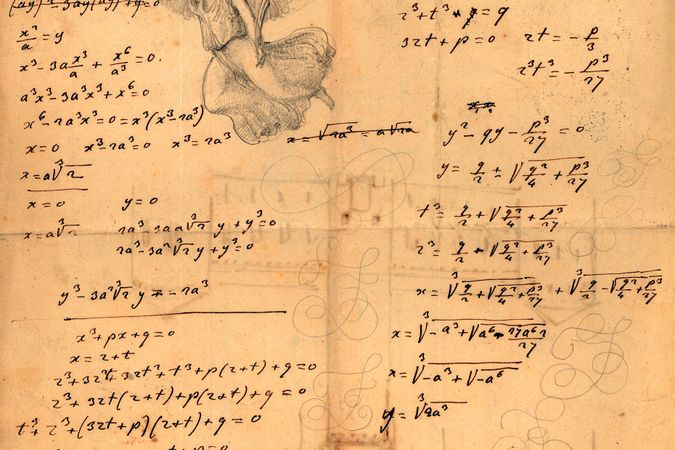 (ay)² - 3ay(ay) + y³=0
x²/a = y
x³ - 3a x³/a + x⁶/a³ = 0.
a³x³ - 3a³x³ + x⁶ = 0
x⁶ - 2a³x³ = 0 = x³(x³ - 2a³)
x = 0 x³ - 2a³ = 0 x³ = 2a³ x = √2a³ = a√2a
x = a∛2
x = 0 y = 0
x = a∛2 2a³ - 3aa∛2 y + y³ = 0
2a³ - 3a²∛2 y + y³ = 0
y³ - 3a²∛2 y = - 2a³
x³ + px + q = 0
x = z + t
z³ + 3z²t + 3zt² + t³ + p(z+t) + q = 0
z³ + 3zt(z+t) + p(z+t) + q = 0
t³ + z³ + (3zt+p)(z+t) + q = 0
z³ + t³ + = q
3zt + p = 0 zt = - p/3
z³t³ = - p³/27
y² - qy - p³/27 = 0
y = q/2 ± √(q²/4 + p³/27)
t³ = q/2 + √(q²/4 + p³/27)
z³ = q/2 + √(q²/4 + p³/27)
x = ∛(q/2 + √(q²/4 + p³/27)) + ∛(q/2 - √(q²/4 + p³/27))
x = ∛(-a³ + √(a⁶ - 27a⁶2/27))
x = ∛(-a³ + √-a⁶)
y = ∛2a³